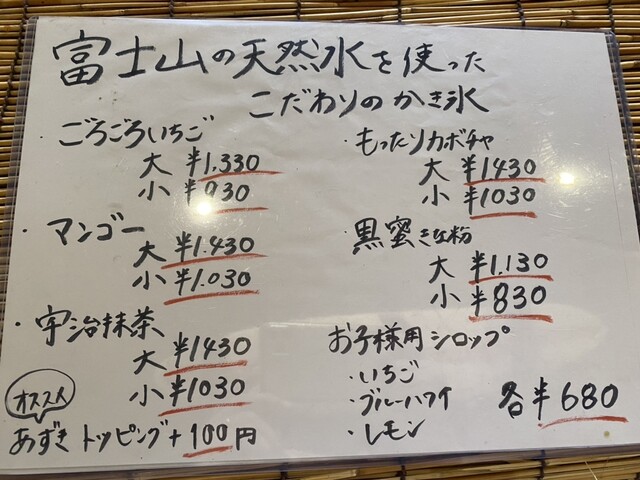 富士山の天然水を使った
こだわりのかき氷
・ごろごろいちご
大 ¥1,330
小 ¥930
・マンゴー
大 ¥1,430
小 ¥1,030
・宇治抹茶
大 ¥1430
小 ¥1030
オススメ
あずきトッピング+100円
・もったりカボチャ
大 ¥1430
小 ¥1030
・黒蜜きな粉
大 ¥1,130
小 ¥830
お子様用シロップ
・いちご
・ブルーハワイ 各¥680
・レモン